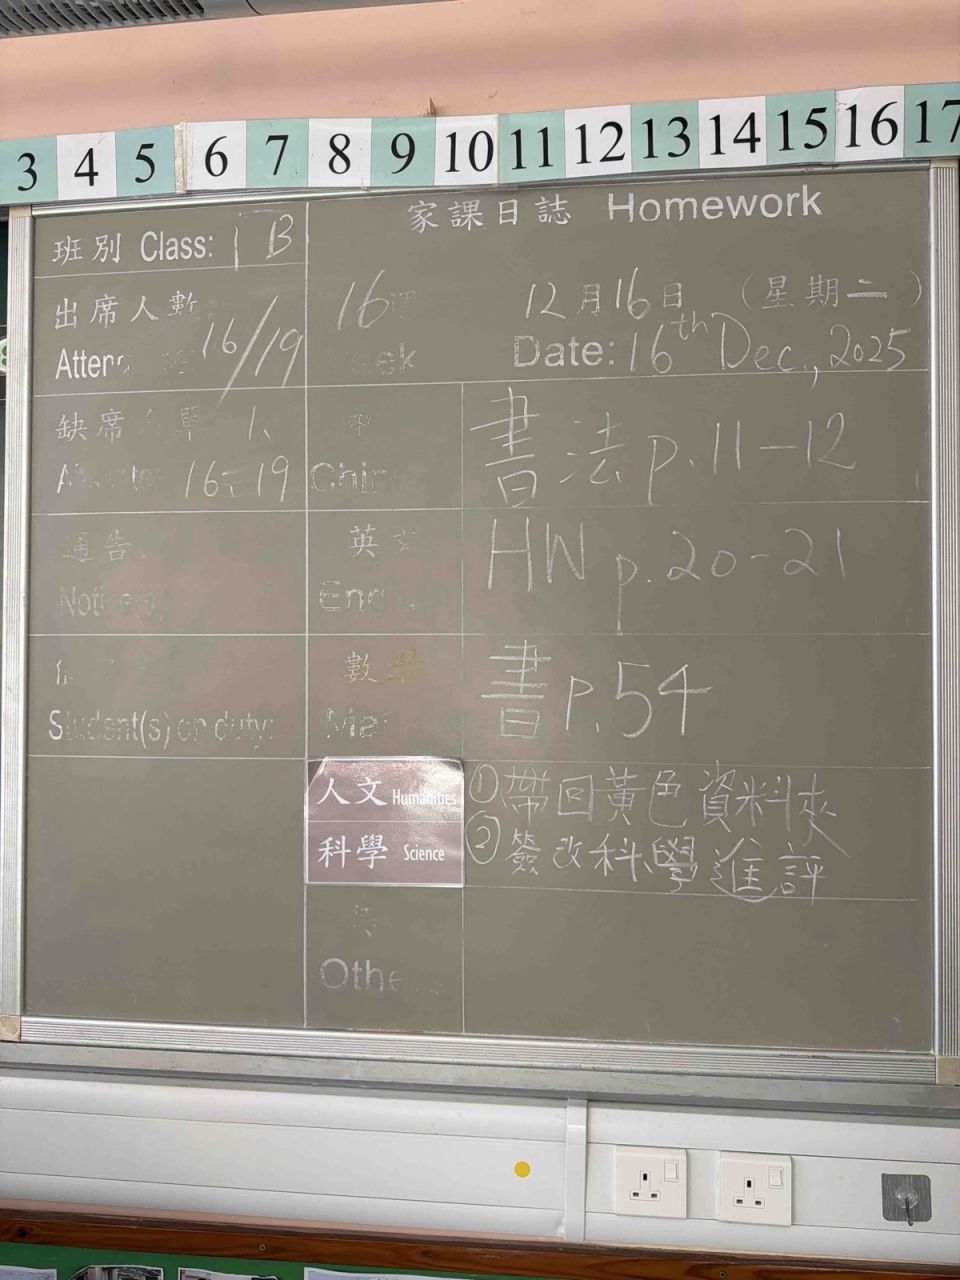 3 4 5 6 7 8 9 10 11 12 13 14 15 16 17
家課日誌 Homework
班別 Class: 1B
出席人數: 16/19
16週
12月16日 (星期二)
Date: 16th Dec., 2025
缺席 單 1、
16 19
中
書法 p.11-12
通告
英文
Eng
HW p.20-21
數學
書 P.54
Student(s) on duty:
人文 Humanities
① 帶回黃色資料夾
科學 Science
② 簽改科學進評
Othe